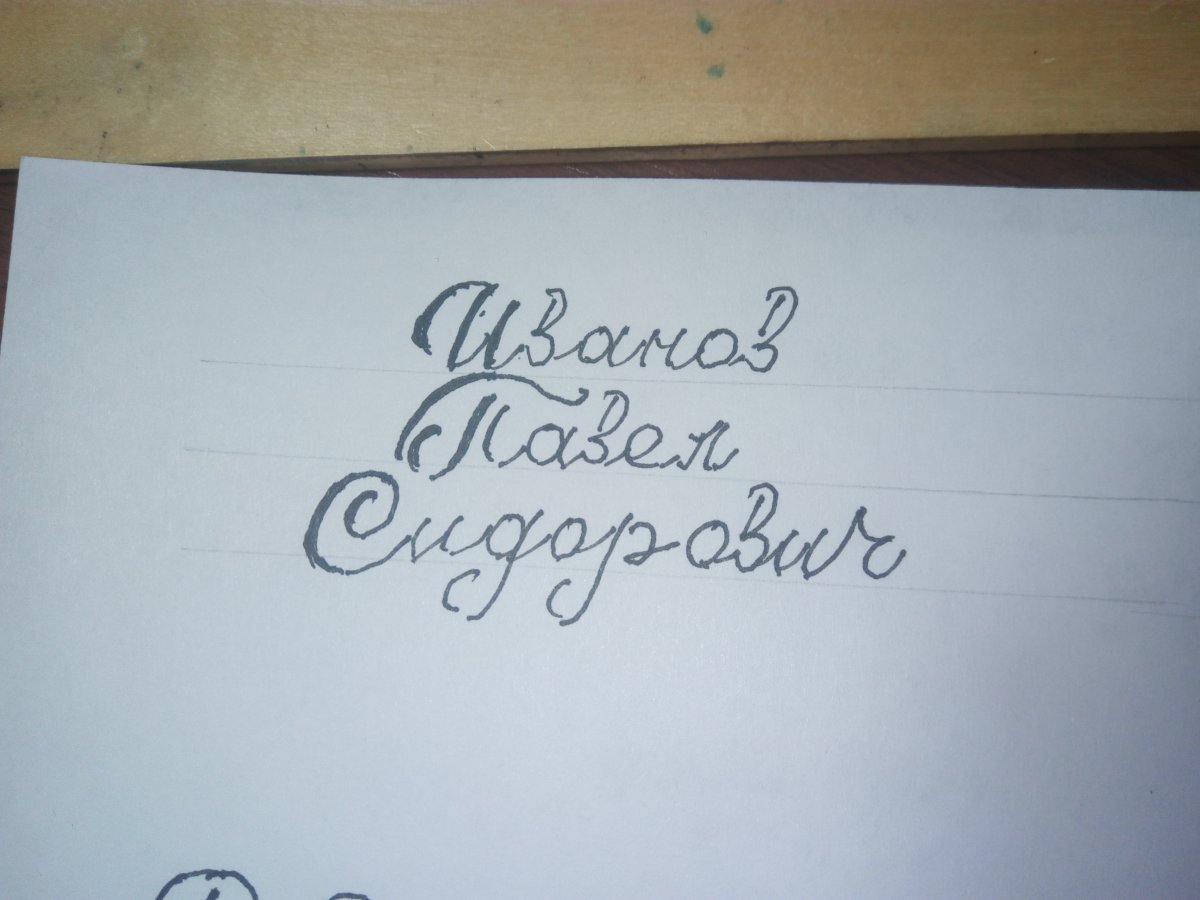 Иванов
Павел
Сидорович